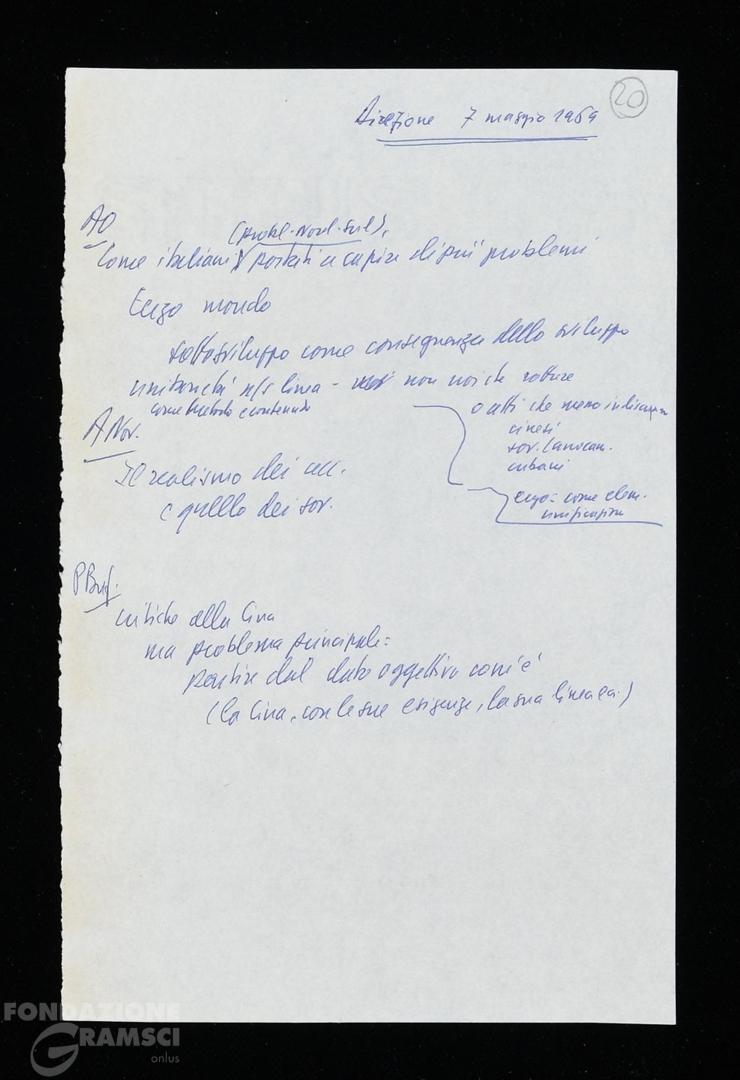 20
Direzione 7 maggio 1969
AO
(probl. Nord-Sud),
Come italiani portati a capire di più problemi
Terzo mondo
sottosviluppo come conseguenza dello sviluppo
unitarietà ns linea - non noi che rotture
come metodo e contenuto
o altri che meno indicano
cinesi
sov.
cubani
ergo = come elem.
unificazione
A Nov.
Il realismo dei
e quello dei sov.
P Buf.
critiche alla Cina
ma problema principale =
partire dal dato oggettivo com'è
(la Cina, con le sue esigenze, la sua linea ecc.)
FONDAZIONE
GRAMSCI
onlus